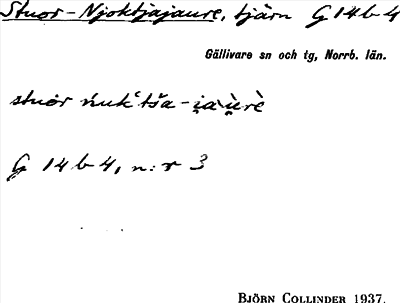 Stuor-Njoktjajaure, tjärn G 14 b 4
Gällivare sn och tg, Norrb. län.
stuor ńuk‛tša-i̯au̯rè
G 14 b 4, n:r 3
BJÖRN COLLINDER 1937.